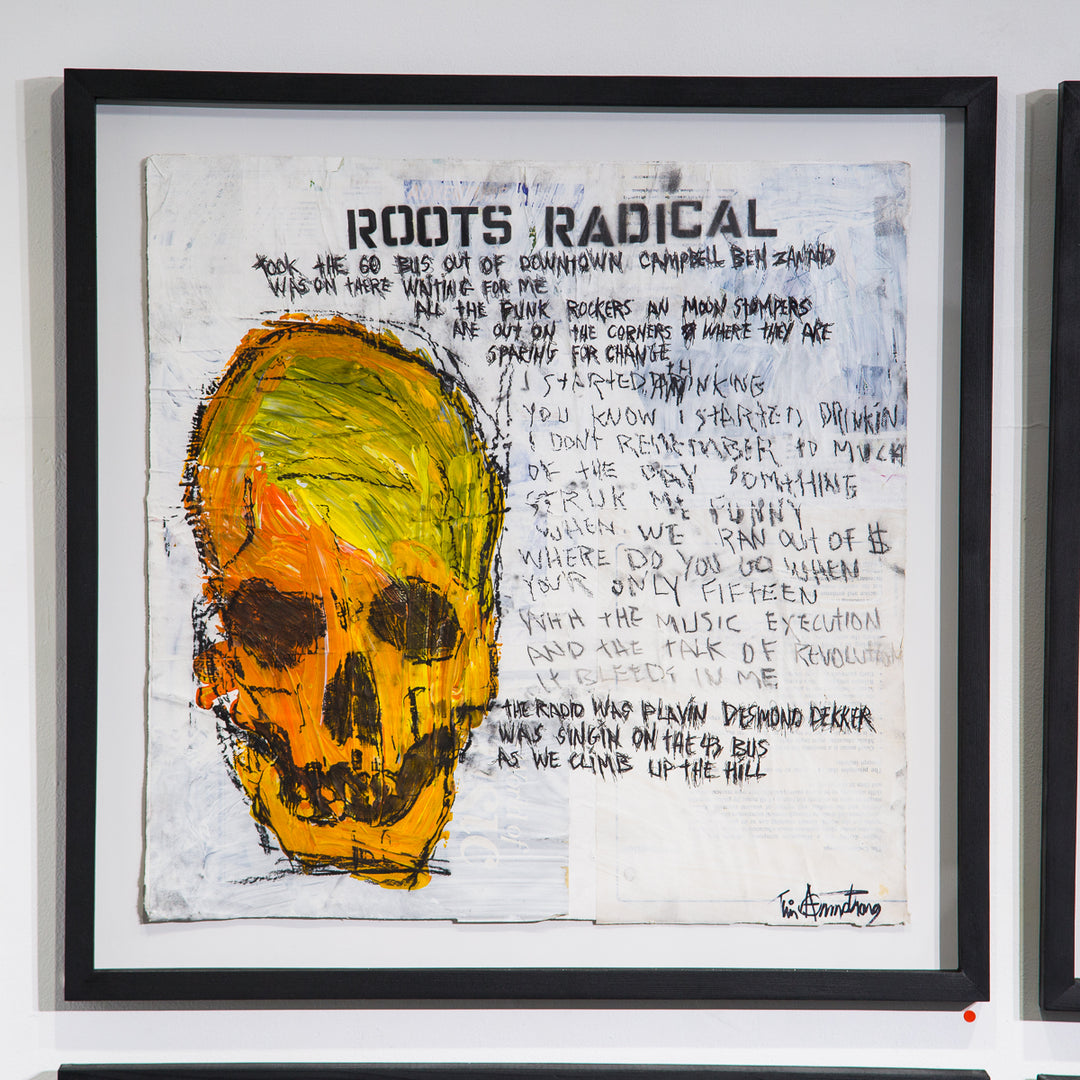 ROOTS RADICAL
TOOK THE 60 BUS OUT OF DOWNTOWN CAMPBELL BEN ZANATO
WAS ON THERE WAITING FOR ME
ALL THE PUNK ROCKERS AN MOON STOMPERS
ARE OUT ON THE CORNERS WHERE THEY ARE
SPARING FOR CHANGE
I STARTED THINKING
YOU KNOW I STARTED DRINKIN
I DONT REMEMBER TO MUCH
OF THE DAY SOMTHING
STRUK ME FUNNY
WHEN WE RAN OUT OF $
WHERE DO YOU GO WHEN
YOUR ONLY FIFTEEN
WITH THE MUSIC EXECUTION
AND THE TALK OF REVOLUTION
IT BLEEDS IN ME
THE RADIO WAS PLAYIN DESMOND DEKKER
WAS SINGIN ON THE 43 BUS
AS WE CLIMB UP THE HILL
Tim Armstrong